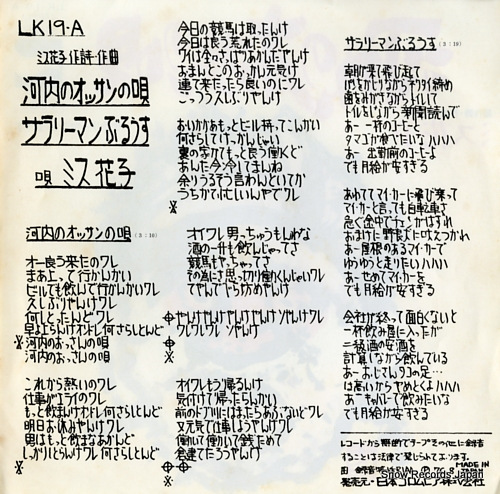 LK19-A
ミス花子 作詩・作曲
河内のオッサンの唄
サラリーマンぶるうす
唄 ミス花子
河内のオッサンの唄 (3:10)
オー良う来たのワレ
まあ上って行かんかい
ビールでも飲んで行かんかいワレ
久しぶりやんけワレ
何しとったんどワレ
早よ上らんけオンドレ何さらしとんど
※ 河内のおっさんの唄
河内のおっさんの唄 ※
これから熱いのワレ
仕事がエライのワレ
もっと飲まんけオンドレ何さらしとんど
明日お休みやんけワレ
男はもっと飲まなあかんど
しっかりとらんけワレ何さらしとんど
※
今日の競馬は取ったんけ
今日は良う荒れたのワレ
ワイは全のさっぱりあかんだやんけ
おまんとこのおっかん元気け
連て来たったら良いのにワレ
ごっつう久しぶりやんけ
おいかかあもっとビール持ってこんかい
何さらしてけっかんじゃい
裏の家かてもっと良う働くど
あんた今今してまんね
余りうるそう言わんといてか
うちかて忙しいんやでワレ
※
オイワレ男っちゅうもんわな
酒の一升も飲んじゃってさ
競馬もやっちゃってさ
その為にさ思っ切り働くんじゃいワレ
てやんでいやんけやんけ
やんけやんけやんけやんけそやんけワレ
ワレワレワレそやんけ
※
オイワレもう帰るんけ
気付けて帰ったらんかい
前のドブ川にはまたらあぶないどワレ
又元気で仕事しようやんけワレ
働いて働いて銭ためて
倉建てたろうやんけ
サラリーマンぶるうす (3:18)
朝が来て飛び起て
パンをかじりながらネクタイ締め
歯をみがきながらトイレして
トイレをしながら新聞読んで
あー一杯のコーヒーと
タマゴが食べたいなハハハ
あー出勤前のコーヒーよ
でも月給が安すぎる
あわててマイ・カーに飛び乗って
マイ・カーと言っても自転車さ
急ぐ途中でチェーンがはずれ
おまけに野良犬に吠えつかれ
あー屋根のあるマイ・カーで
ゆうゆうと走りたいハハハ
あーせめてマイ・カーを
でも月給が安すぎる
会社が終って面白くないと
一杯飲み屋に入ったが
二級酒の安酒を
計算しながら飲んでいる
あーおじさん 93の足…
は高いからやめとくよハハハ
あーキャバレーで飲みたいな
でも月給が安すぎる
レコードから無断でテープその他に録音
することは法律で禁じられております。
MADE IN
Snow Records Japan
発売元・日本コロムビア株式会社